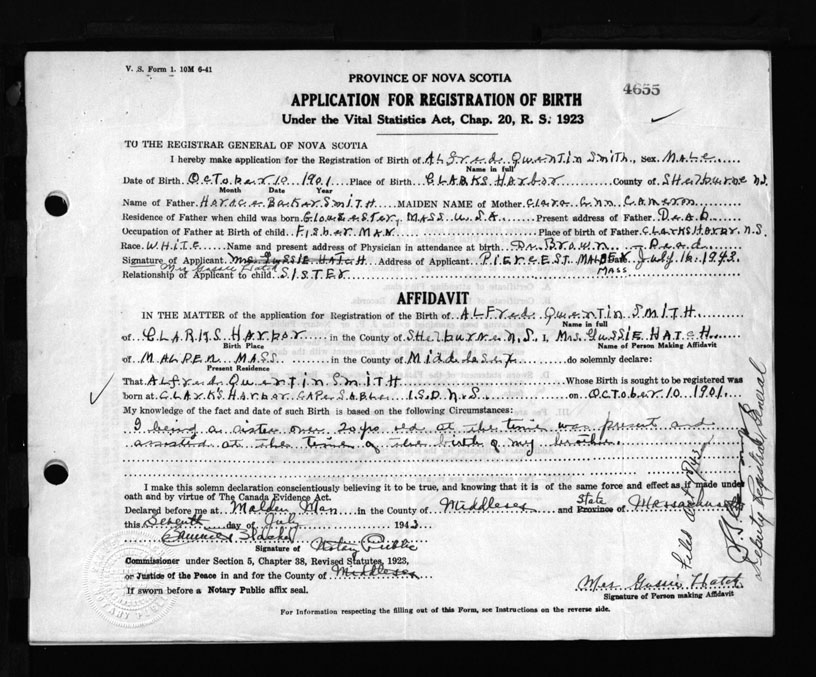 V. S. Form 1. 10M 6-41
PROVINCE OF NOVA SCOTIA
4655
APPLICATION FOR REGISTRATION OF BIRTH
Under the Vital Statistics Act, Chap. 20, R. S. 1923
TO THE REGISTRAR GENERAL OF NOVA SCOTIA
I hereby make application for the Registration of Birth of ALfred Quentin Smith, sex MaLe
Name in full
Date of Birth October 10 1901 Place of Birth CLARKS Harbor County of SHelburne N.S.
Month Date Year
Name of Father Horace Barker SMITH MAIDEN NAME of Mother Clara Ann Cameron
Residence of Father when child was born Gloucester, Mass U.S.A. Present address of Father Dead
Occupation of Father at Birth of child FisherMan Place of birth of Father CLARKS Harbor, N.S.
Race WHITE Name and present address of Physician in attendance at birth Dr. Brown Dead
Signature of Applicant Mrs. GUSSIE HATCH Address of Applicant PIERCE ST. MALDEN Date July 16. 1943.
Mrs Gussie Hatch
MASS
Relationship of Applicant to child SISTER
AFFIDAVIT
IN THE MATTER of the application for Registration of the Birth of ALFred Quentin SMITH
Name in full
of CLARKS Harbor in the County of SHelburne N.S. I, Mrs. GUSSIE HATCH
Birth Place Name of Person Making Affidavit
of MALDEN MASS. in the County of Middlesex do solemnly declare:
Present Residence
That ALfred Quentin SMITH Whose Birth is sought to be registered was
born at CLARKS HARBOR CAPE SABLE ISD. N.S. on October 10 1901.
My knowledge of the fact and date of such Birth is based on the following Circumstances:
I being a sister over 20 yrs old at the time was present and
assisted at the time of the birth of my brother.
I make this solemn declaration conscientiously believing it to be true, and knowing that it is of the same force and effect as if made under
oath and by virtue of The Canada Evidence Act.
Declared before me at Malden Mass in the County of Middlesex and Province of Massachusetts
State
this Seventh day of July 1943
Signature of Notary Public
Commissioner under Section 5, Chapter 38, Revised Statutes, 1923,
or Justice of the Peace in and for the County of Middlesex
If sworn before a Notary Public affix seal.
Mrs Gussie Hatch
Signature of Person making Affidavit
For Information respecting the filling out of this Form, see Instructions on the reverse side.
Filed
1943
Deputy Registrar General